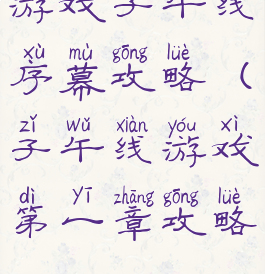 游戏子午线
xù mù gōng lüè
序幕攻略（
zǐ wǔ xiàn yóu xì
子午线游戏
dì yī zhāng gōng lüè
第一章攻略